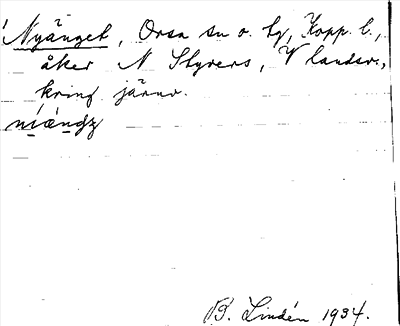 Nyänget, Orsa sn o. tg, Kopp. l.,
åker N Styvers, V landsv.,
kring järnv.
níændz
B. Lindén 1934.